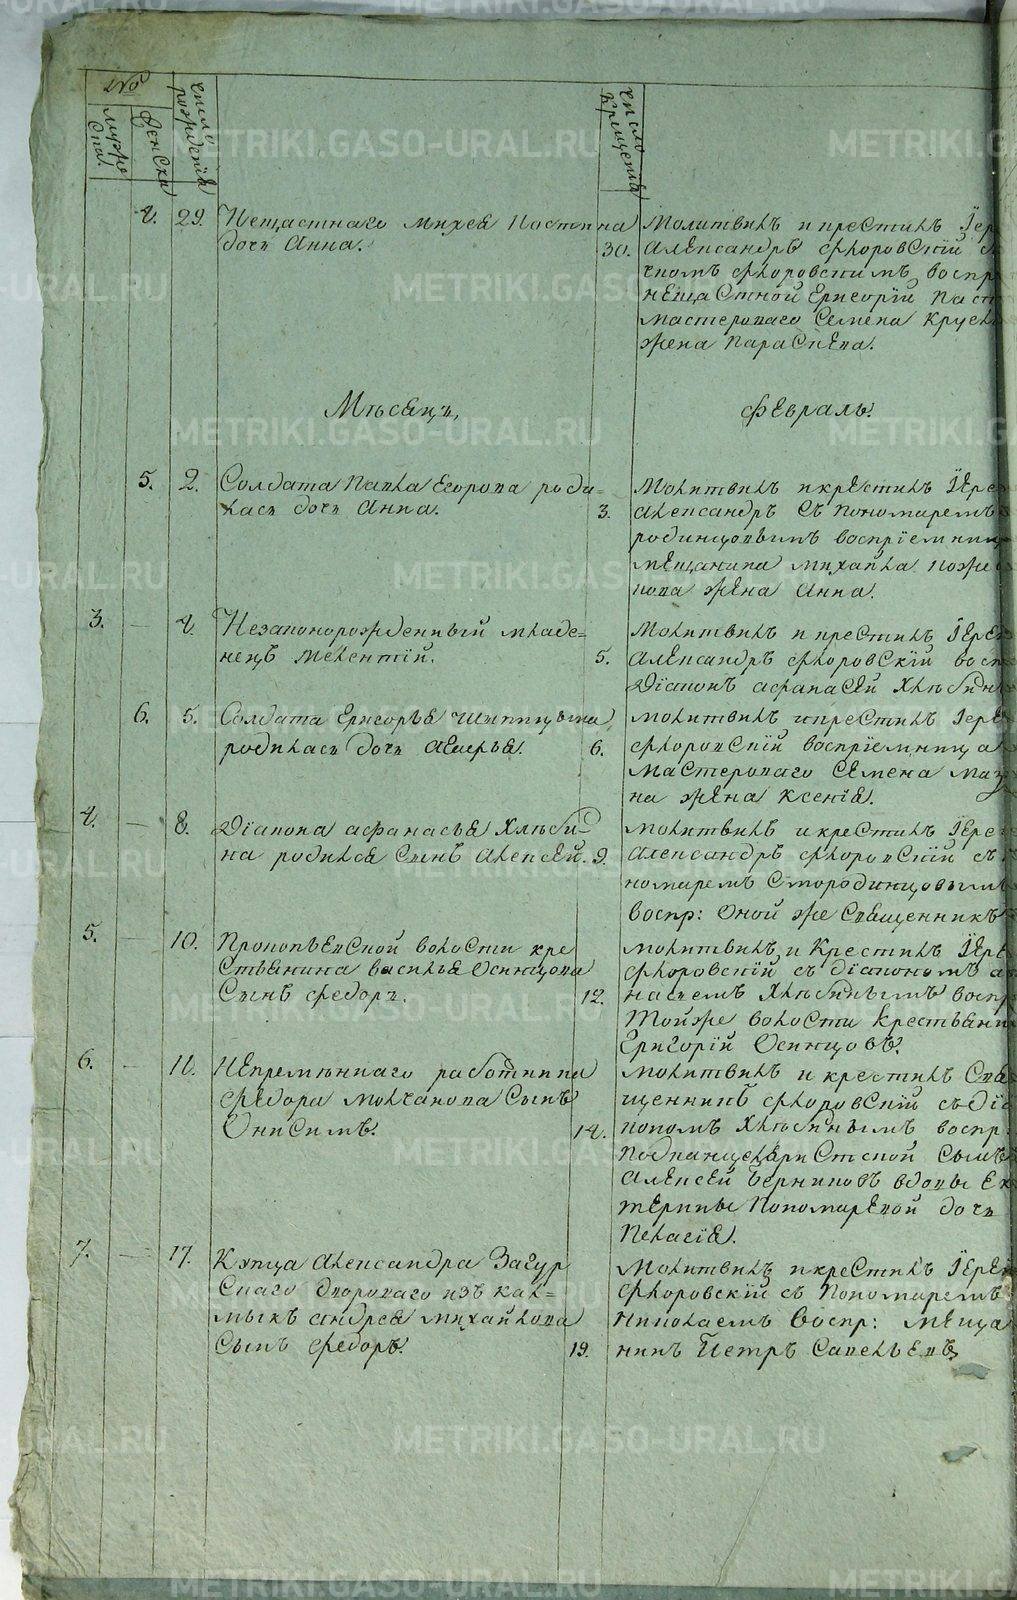 №
мужеска
Женска
число рожденія
число крещенія
4. 29. Нещастнаго Михея Постни
дочь Анна.
30.
на Молитвилъ и крестилъ Iер
Александръ Флоровскій
нымъ Флоровскимъ воспр
нещастной Григорій
мастероваго Семена
жена Параскева.
Мѣсяцъ,
Февраль.
5. 2. Солдата Павла Егорова роди-
лась дочь Анна.
3.
Молитвилъ и крестилъ Iере
Александръ съ пономаремъ
родинцовымъ воспріемниц
мѣщанина Михайла
нова жена Анна.
3. — 4. Незаконорожденный младе-
нецъ Мелентій.
5.
Молитвилъ и крестилъ Iере
Александръ Флоровскій восп
Діаконъ Афанасей Хлѣбин
6. 5. Солдата Григорья
родилась дочь
6.
Молитвилъ и крестилъ Iере
Флоровскій воспріемница
мастероваго Семена
на жена Ксенія.
4. — 8. Діакона Афанасья Хлѣби-
на родился сынъ Алексей.
9.
Молитвилъ и крестилъ Iере
Александръ Флоровскій съ
номаремъ Смородинцовымъ
воспр: оной же священникъ
5. — 10. Прокопьевской волости кре
стьянина Василья Осинцова
сынъ Федоръ.
12.
Молитвилъ и крестилъ Iер
Флоровскій съ діакономъ а
насьемъ Хлѣбинымъ воспр
тойже волости крестьяни
Григорій Осинцовъ.
6. 11. Непремѣннаго работника
Федора Молчанова сынъ
Онисимъ.
14.
Молитвилъ и крестилъ Свя
щенникъ Флоровскій съ діа
кономъ Хлѣбинымъ воспр:
подканцеляристской сынъ
Алексей Берниковъ вдовы Ек
терины Пономаревой дочь
Пелагія.
7. — 17. Купца Александра Загур
скаго двороваго изъ кал-
мыкъ Андрея Михайлова
сынъ Федоръ.
19.
Молитвилъ и крестилъ Iерей
Флоровскій съ Пономаремъ
Николаемъ воспр: мѣща
нинъ Петръ Савельевъ
METRIKI.GASO-URAL.RU